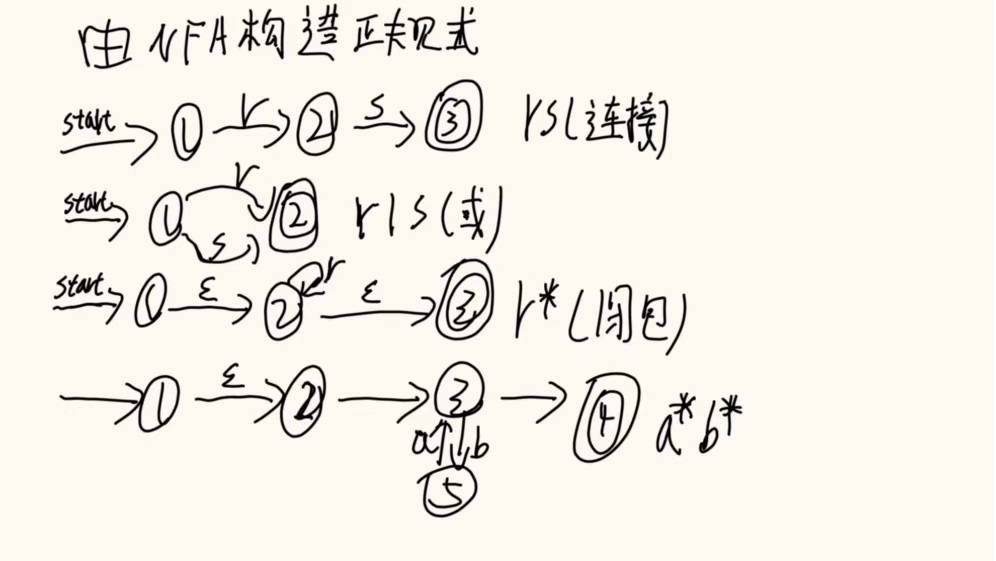 由NFA构造正规式
start 1 r 2 s 3 rs(连接)
start 1 r s 2 r|s(或)
start 1 ε 2 r ε 3 r*(闭包)
1 ε 2 3 4 a*b*
a b
5